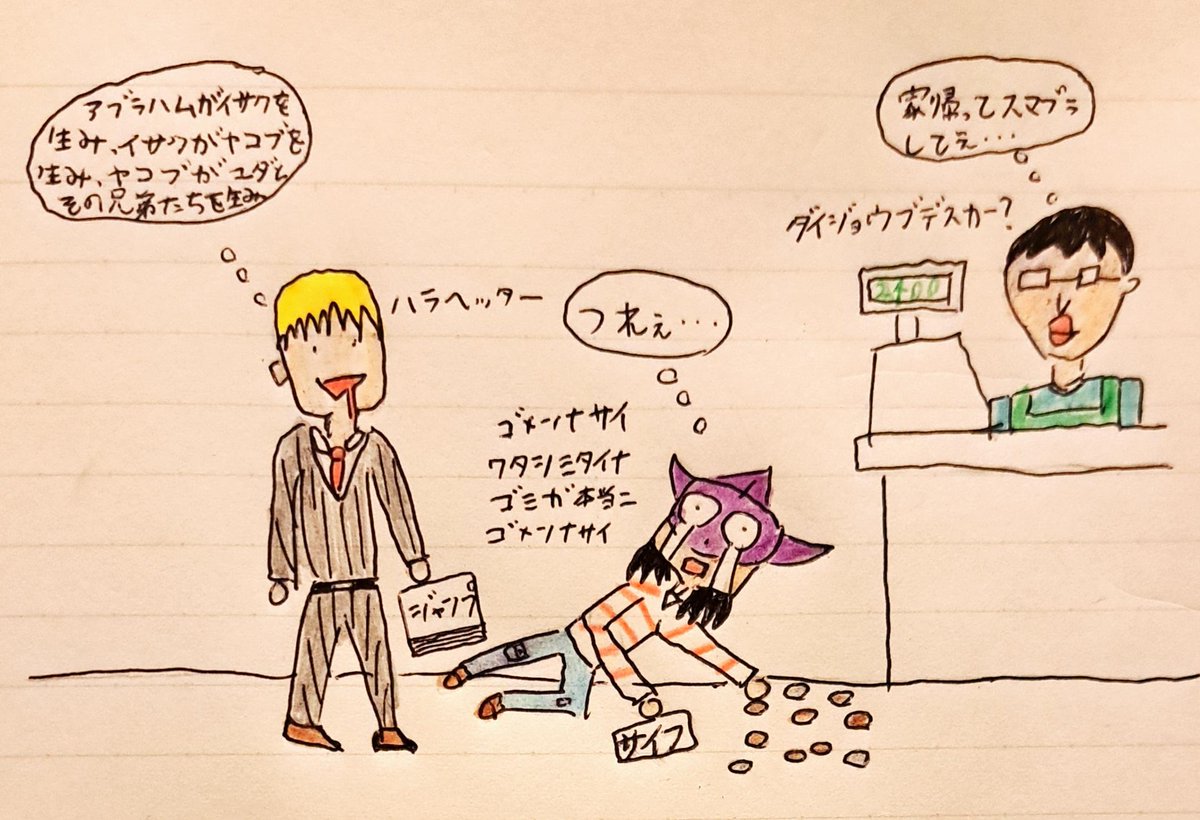 アブラハムがイサクを
生み、イサクがヤコブを
生み、ヤコブがユダと
その兄弟たちを生み
ハラヘッター
ジャンプ
つれぇ・・・
ゴメンナサイ
ワタシミタイナ
ゴミガ本当ニ
ゴメンナサイ
サイフ
家帰ってスマブラ
してぇ・・・
ダイジョウブデスカー?
2400